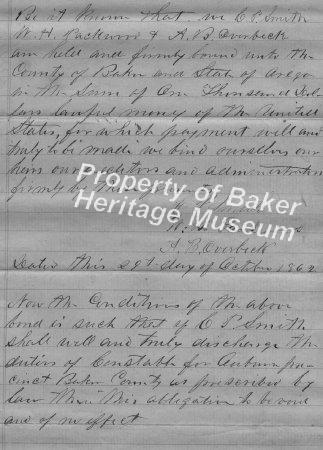 Be it Known that we C P. Smith
W. H. Packwood & A. B Overbeck
are held and firmly bound unto the
County of Baker and State of Oregon
in the Sum of One Thousand Dol
lars lawful money of the United
States, for which payment well and
truly to be made we bind ourselves our
heirs our executors and administrators
firmly by
Property of Baker
Heritage Museum
A. B. Overbeck
Dated this 29th day of October 1862
Now the Conditions of the above
bond is such that if C P. Smith
shall well and truly discharge the
duties of Constable for Auburn pre
cinct Baker County as prescribed by
law then this obligation to be void
and of no effect